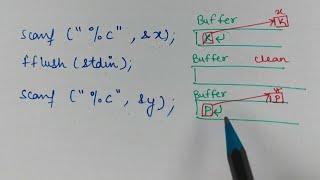 Buffer x
K
scanf ("%c", &x);
K ↵
fflush (stdin);
Buffer clean
scanf ("%c", &y);
Buffer y
P
P ↵